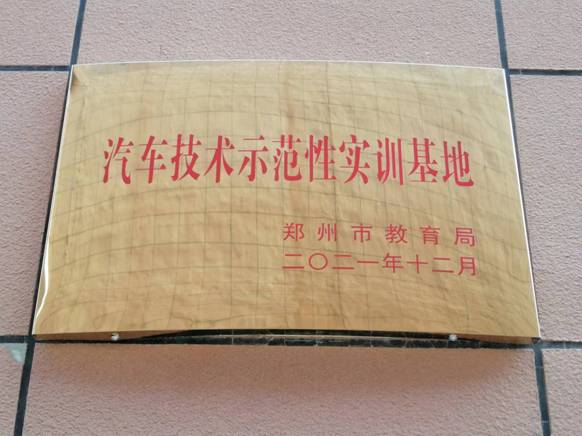 汽车技术示范性实训基地
郑州市教育局
二〇二一年十二月